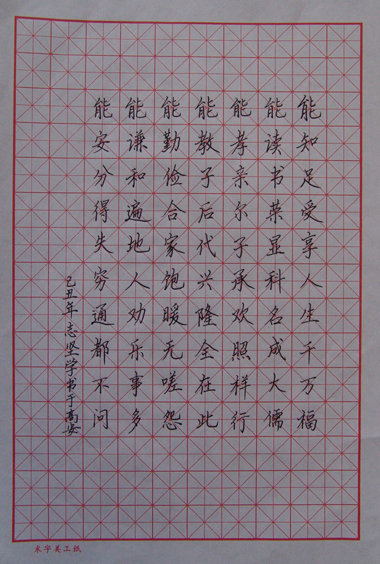 能知足受享人生千万福
能读书荣显科名成大儒
能孝亲尔子承欢照样行
能教子后代兴隆全在此
能勤俭合家饱暖无嗟怨
能谦和遍地人劝乐事多
能安分得失穷通都不问
己丑年志坚学书于高安
米字美工纸